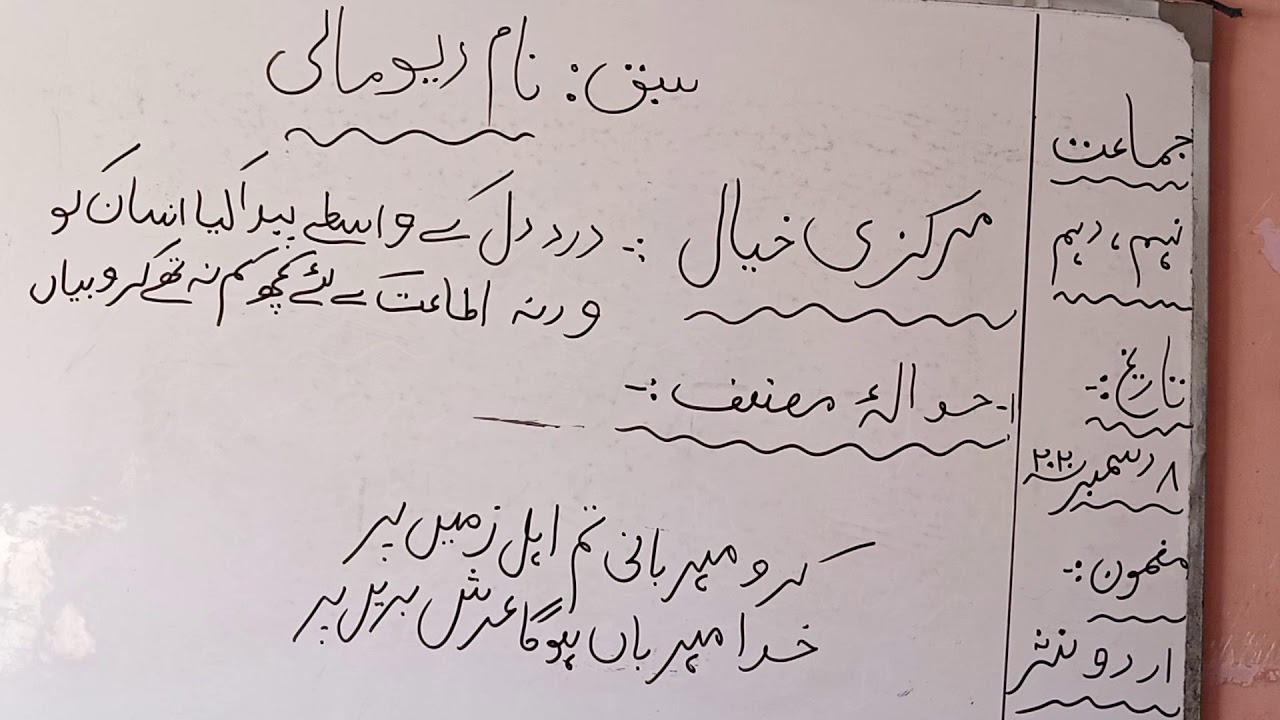 سبق: نام دیو مالی
مرکزی خیال :- درد دل کے واسطے پیدا کیا انسان کو
ورنہ اطاعت کے لئے کچھ کم نہ تھے کروبیاں
۱- حوالۂ مصنف :-
کرو مہربانی تم اہل زمیں پر
خدا مہرباں ہوگا عرش بریں پر
جماعت
نہم، دہم
تاریخ :-
۸ دسمبر ۲۰۲۰
مضمون :-
اردو نثر